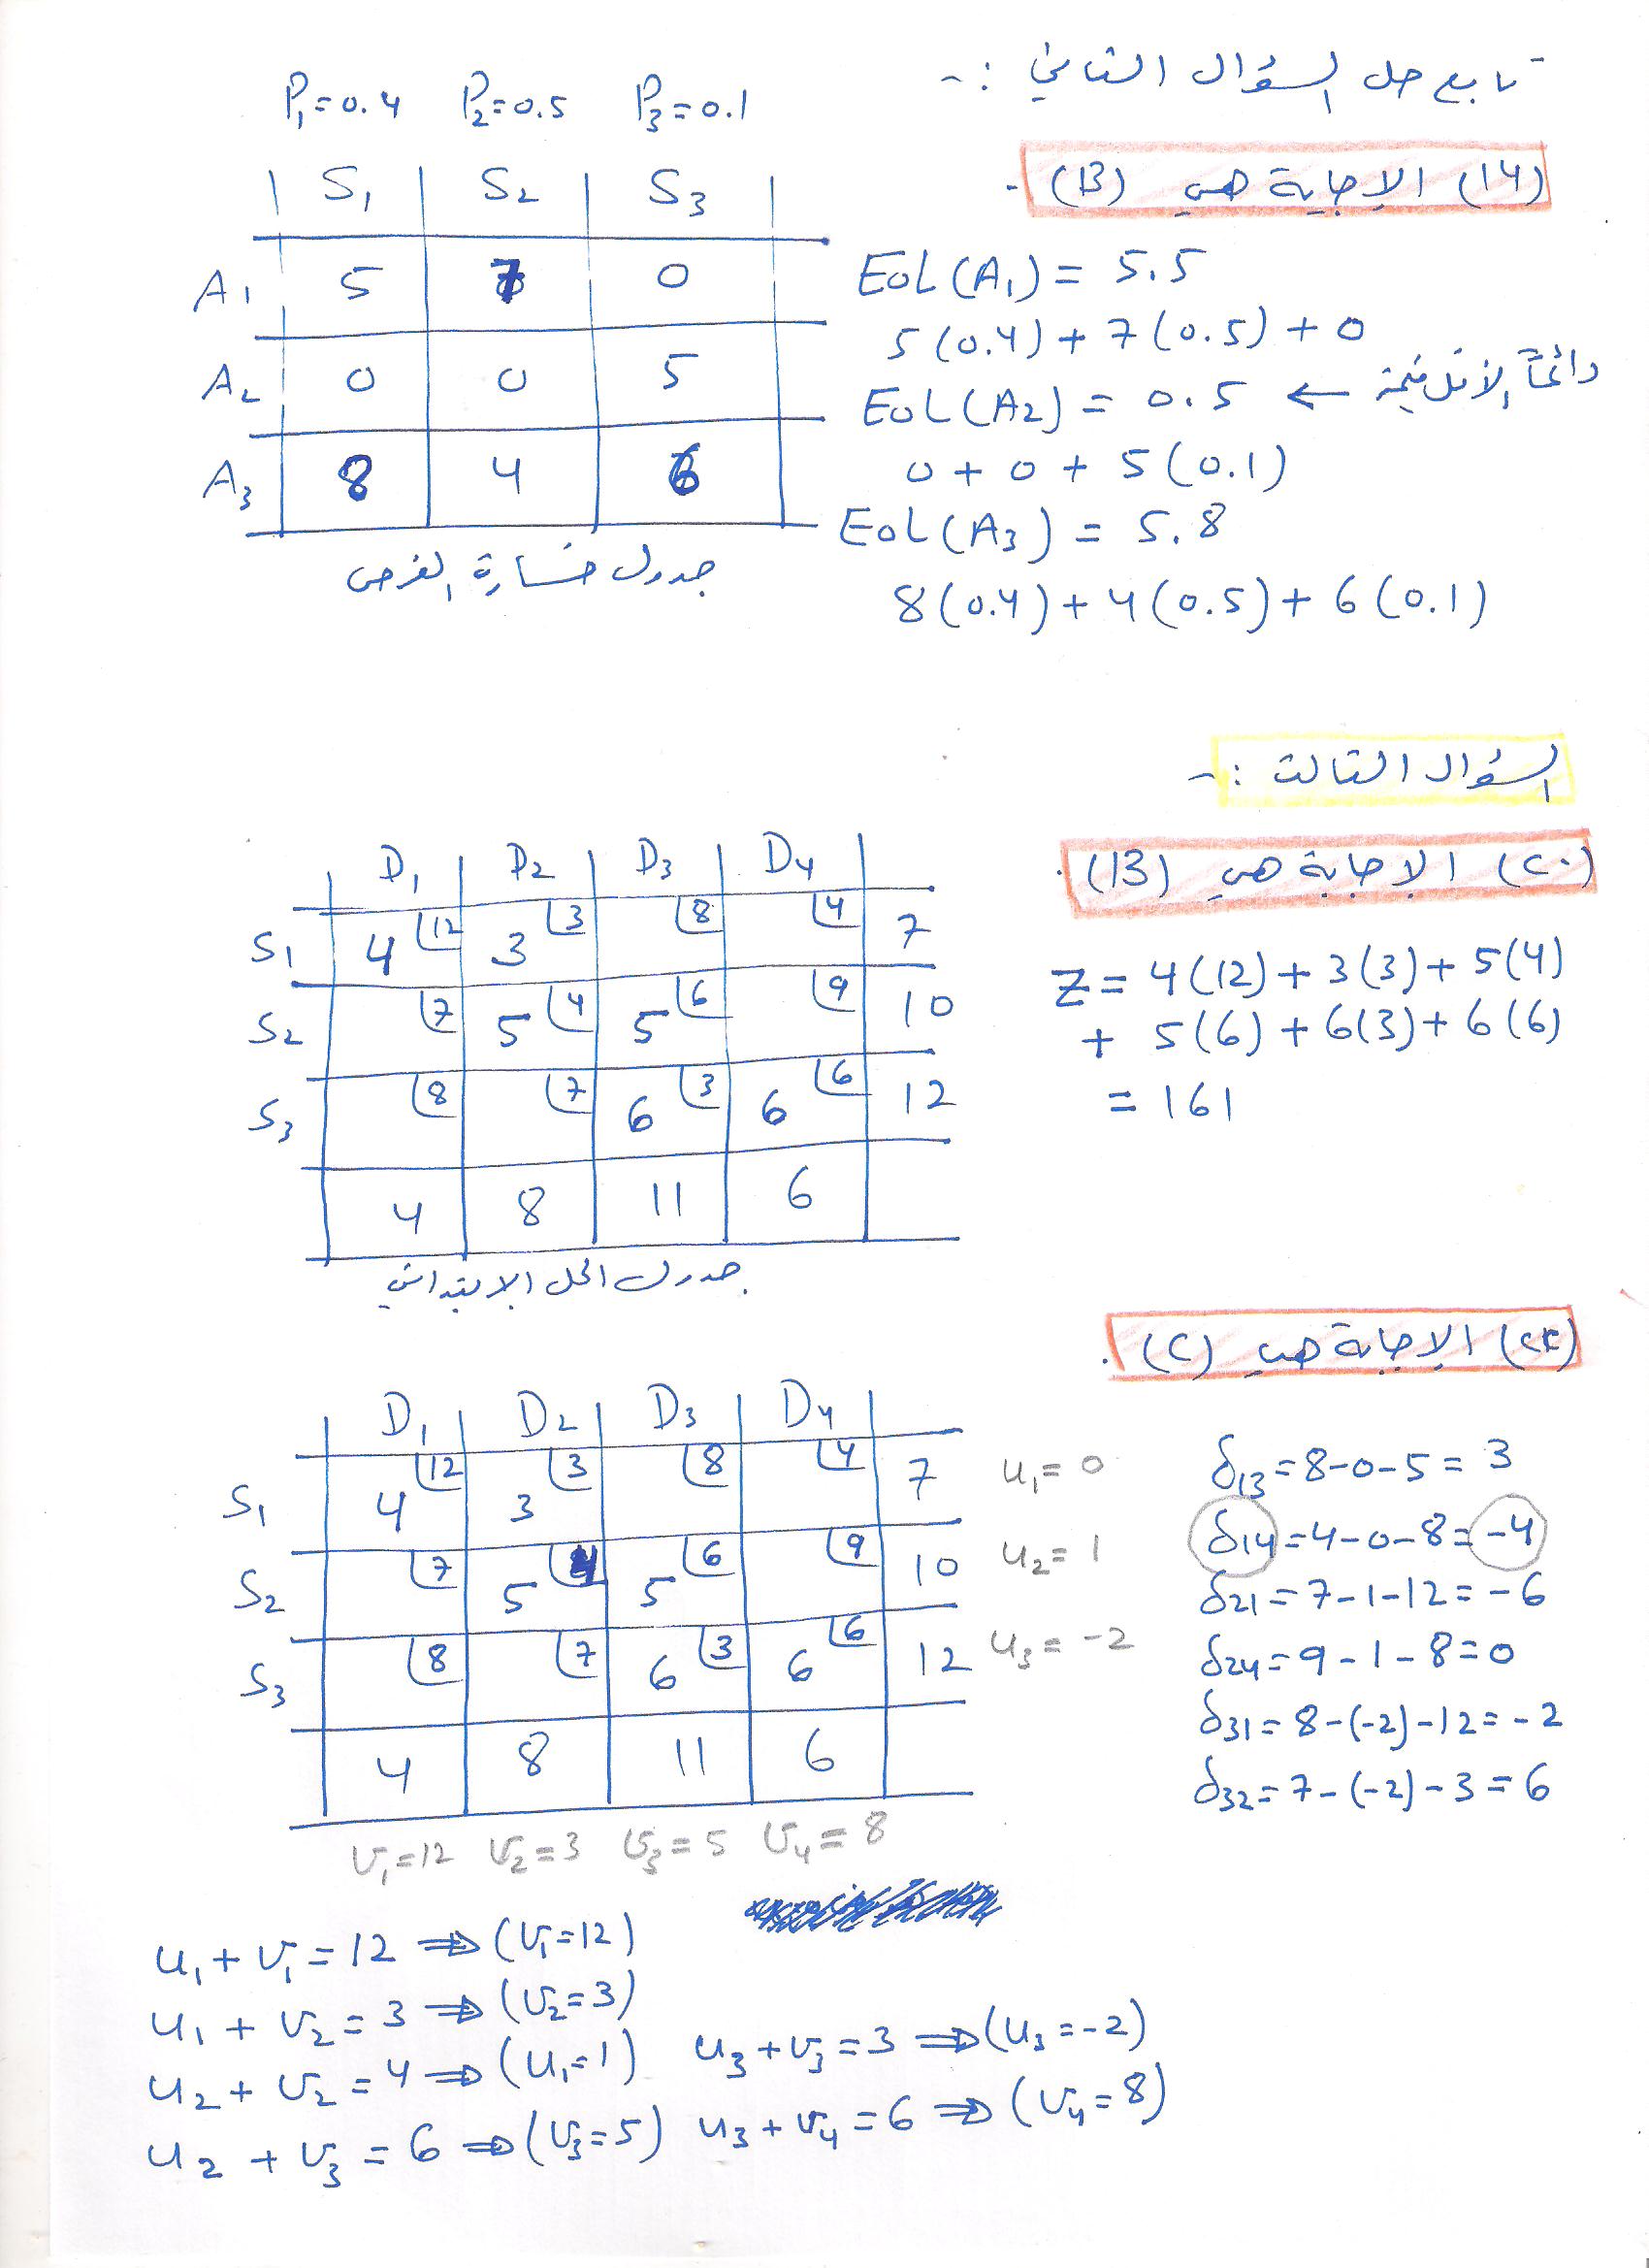 تابع حل السؤال الثاني :-
(14) الإجابة هي (B) .
P₁=0.4 P₂=0.5 P₃=0.1
S₁ S₂ S₃
A₁ 5 7 0
A₂ 0 0 5
A₃ 8 4 6
جدول خسارة الفرص
EoL(A₁) = 5.5
5(0.4) + 7(0.5) + 0
EoL(A₂) = 0.5 ← دائماً الأقل قيمة
0 + 0 + 5(0.1)
EoL(A₃) = 5.8
8(0.4) + 4(0.5) + 6(0.1)
السؤال الثالث :-
(٢٠) الإجابة هي (B) .
D₁ D₂ D₃ D₄
S₁ 4 12 3 3 8 4 7
S₂ 7 5 4 5 6 9 10
S₃ 8 7 6 3 6 6 12
4 8 11 6
جدول الحل الابتدائي
Z = 4(12) + 3(3) + 5(4)
+ 5(6) + 6(3) + 6(6)
= 161
(٢٢) الإجابة هي (C) .
D₁ D₂ D₃ D₄
S₁ 4 12 3 3 8 4 7 u₁=0
S₂ 7 5 4 5 6 9 10 u₂=1
S₃ 8 7 6 3 6 6 12 u₃=-2
4 8 11 6
v₁=12 v₂=3 v₃=5 v₄=8
δ₁₃=8-0-5=3
δ₁₄=4-0-8=-4
δ₂₁=7-1-12=-6
δ₂₄=9-1-8=0
δ₃₁=8-(-2)-12=-2
δ₃₂=7-(-2)-3=6
u₁+v₁=12 ⇒ (v₁=12)
u₁+v₂=3 ⇒ (v₂=3)
u₂+v₂=4 ⇒ (u₁=1) u₃+v₃=3 ⇒ (u₃=-2)
u₂+v₃=6 ⇒ (v₃=5) u₃+v₄=6 ⇒ (v₄=8)